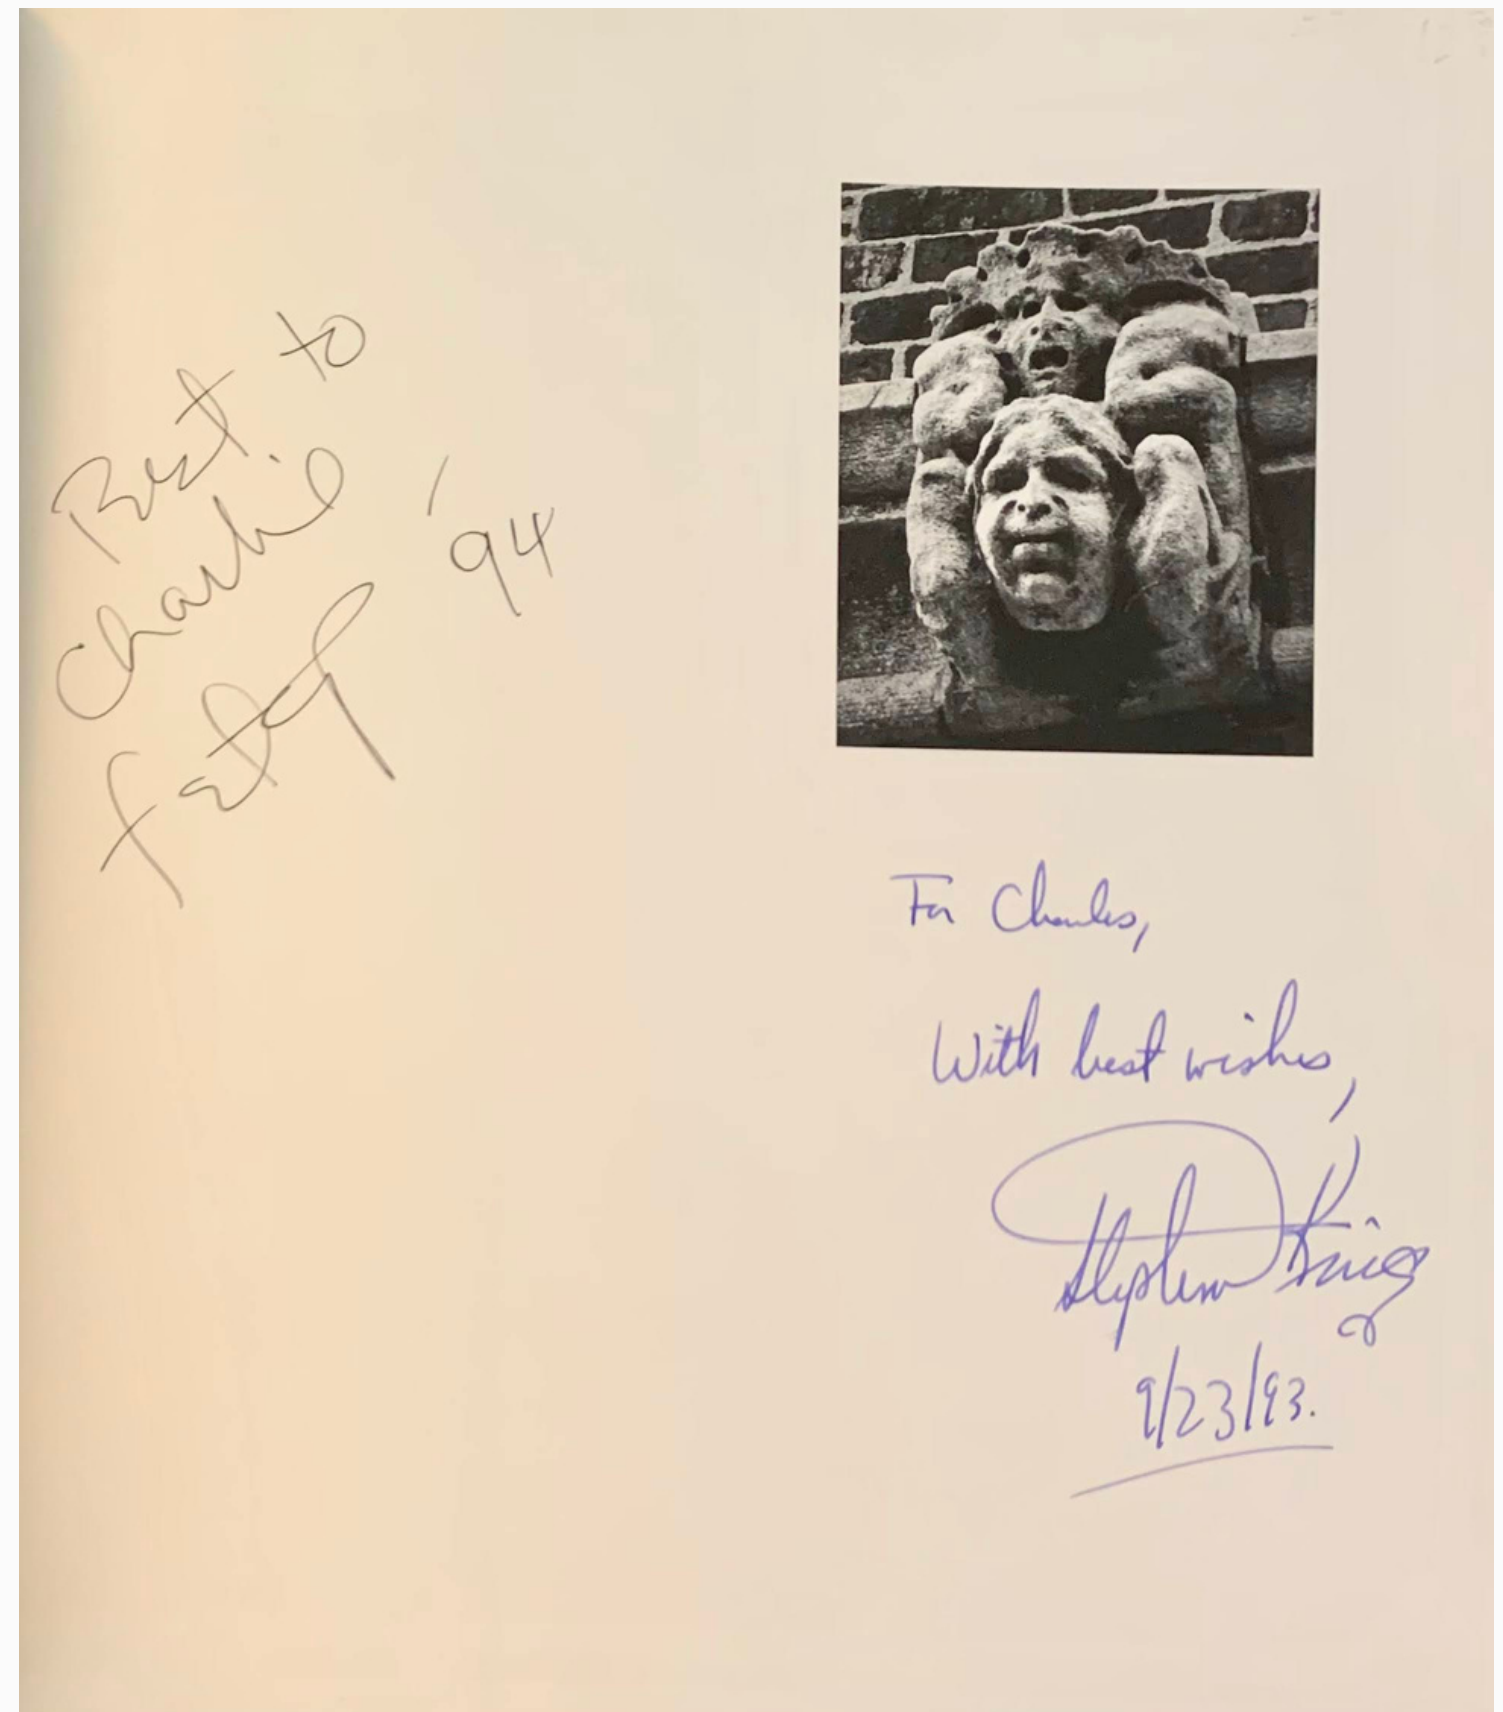 Best to
Charlie
f stop '94
For Charles,
With best wishes,
Stephen King
9/23/93.